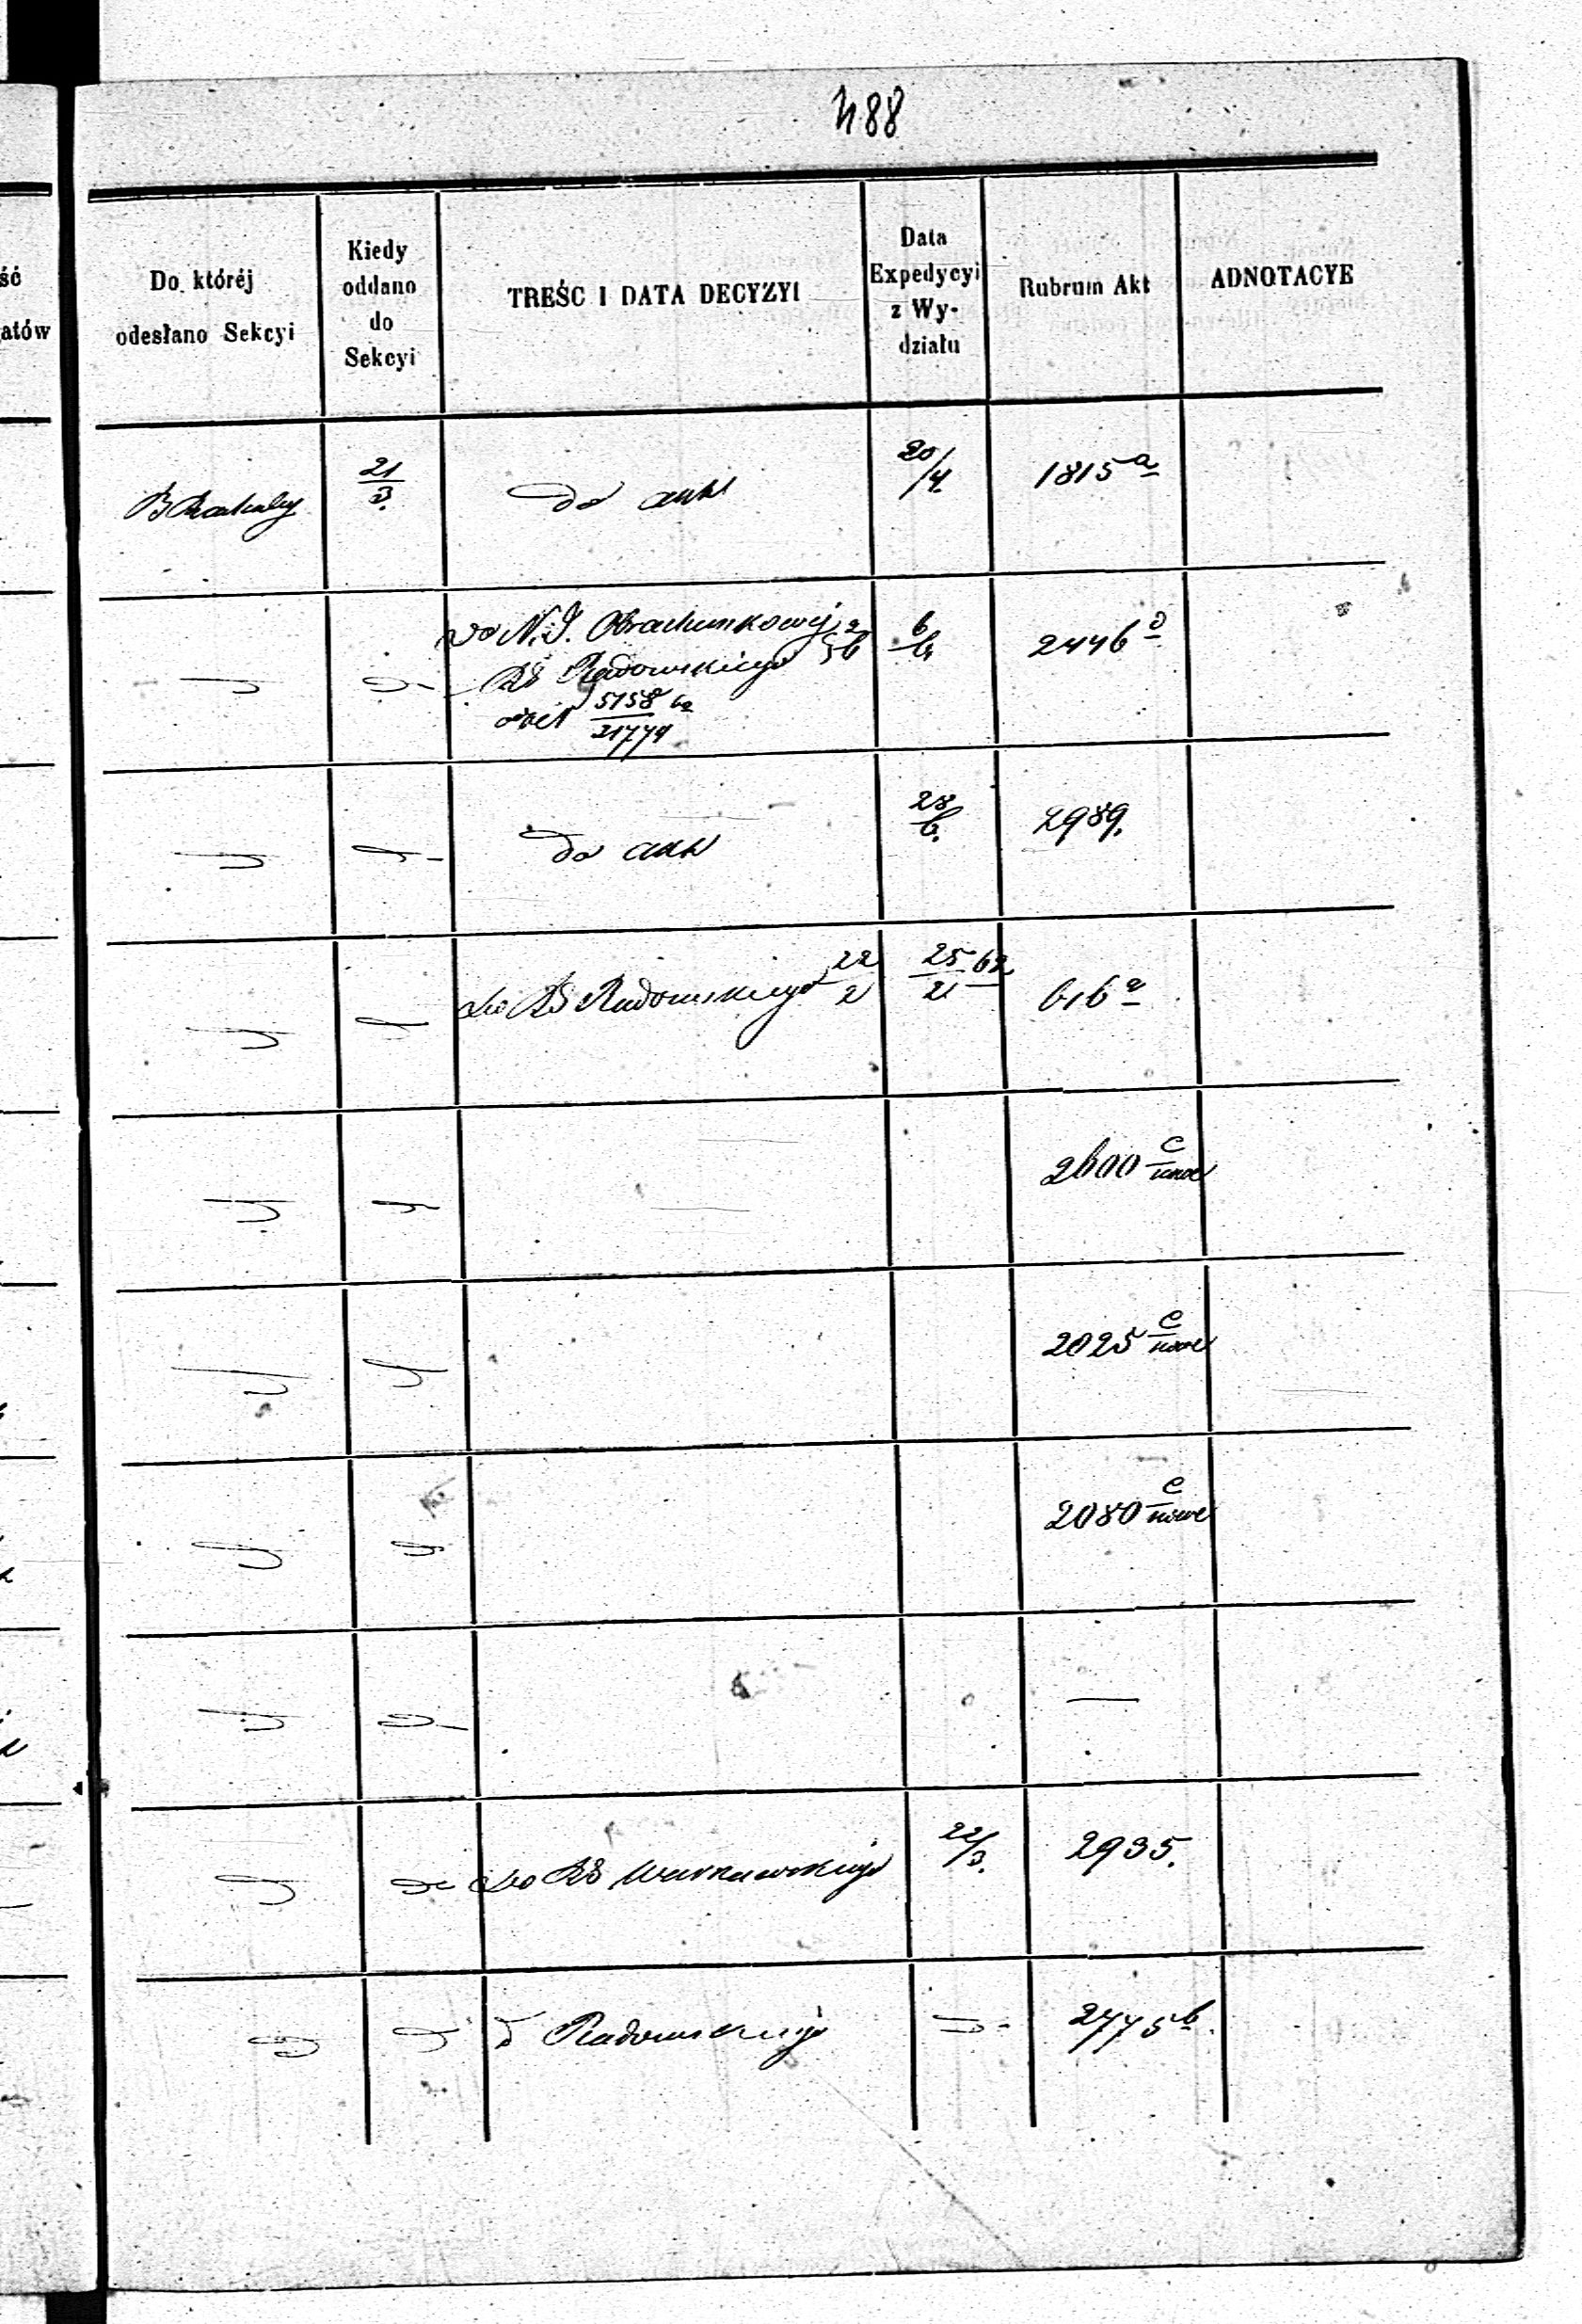 488
ść
atów
Do któréj
odesłano Sekcyi
Kiedy
oddano
do
Sekcyi
TREŚC I DATA DECYZYI
Data
Expedycyi
z Wy-
działu
Rubrum Akt
ADNOTACYE
21/3. Do akt 20/4. 1815 a
Do N. I. Obrachunkowej
RG Radomskiego 6/6 2446 d
5758/21774
Do akt 28/6. 2989.
Do RG Radomskiego 22/2 25/2 62 616 a
2600 c/nowe
2025 c/nowe
2080 c/nowe
Do RG Warszawskiego 22/3. 2935.
Radomskiego 2775 b